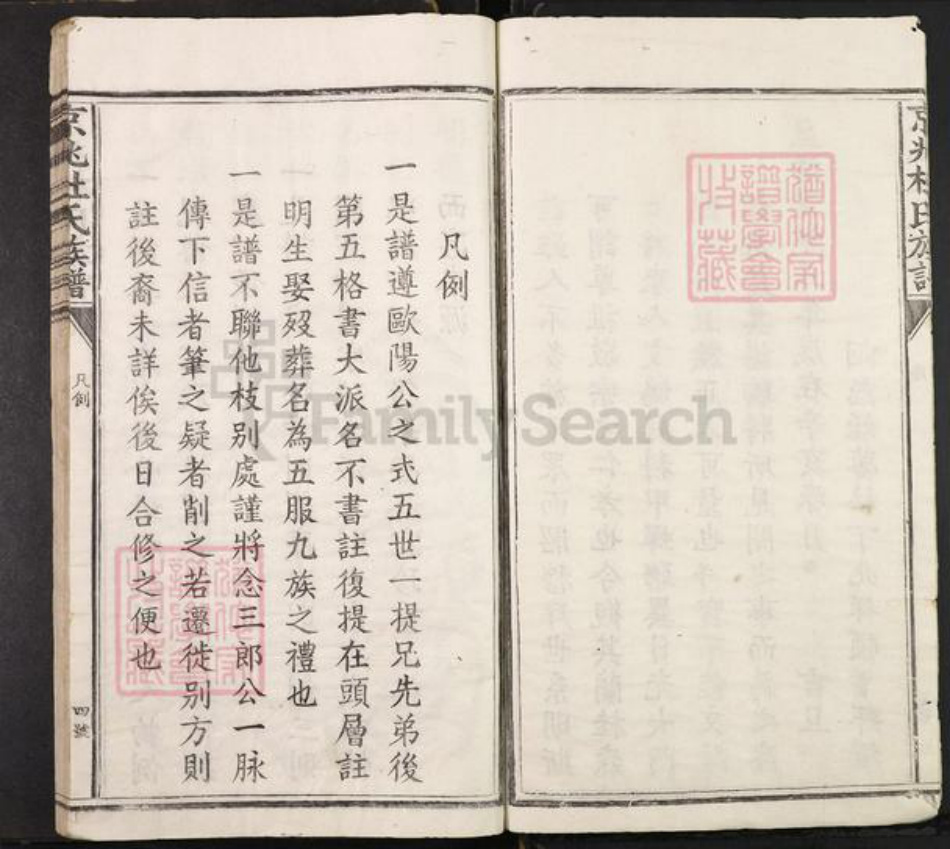 京兆杜氏族譜
凡例
一是譜遵歐陽公之式五世一提兄先弟後
第五格書大派名不書註復提在頭層註
明生娶歿葬名為五服九族之禮也
一是譜不聯他枝别處謹將念三郎公一脉
傳下信者筆之疑者削之若遷徙别方則
註後裔未詳俟後日合修之便也
京兆杜氏族譜
凡例
四號
譜學會
收藏
FamilySearch